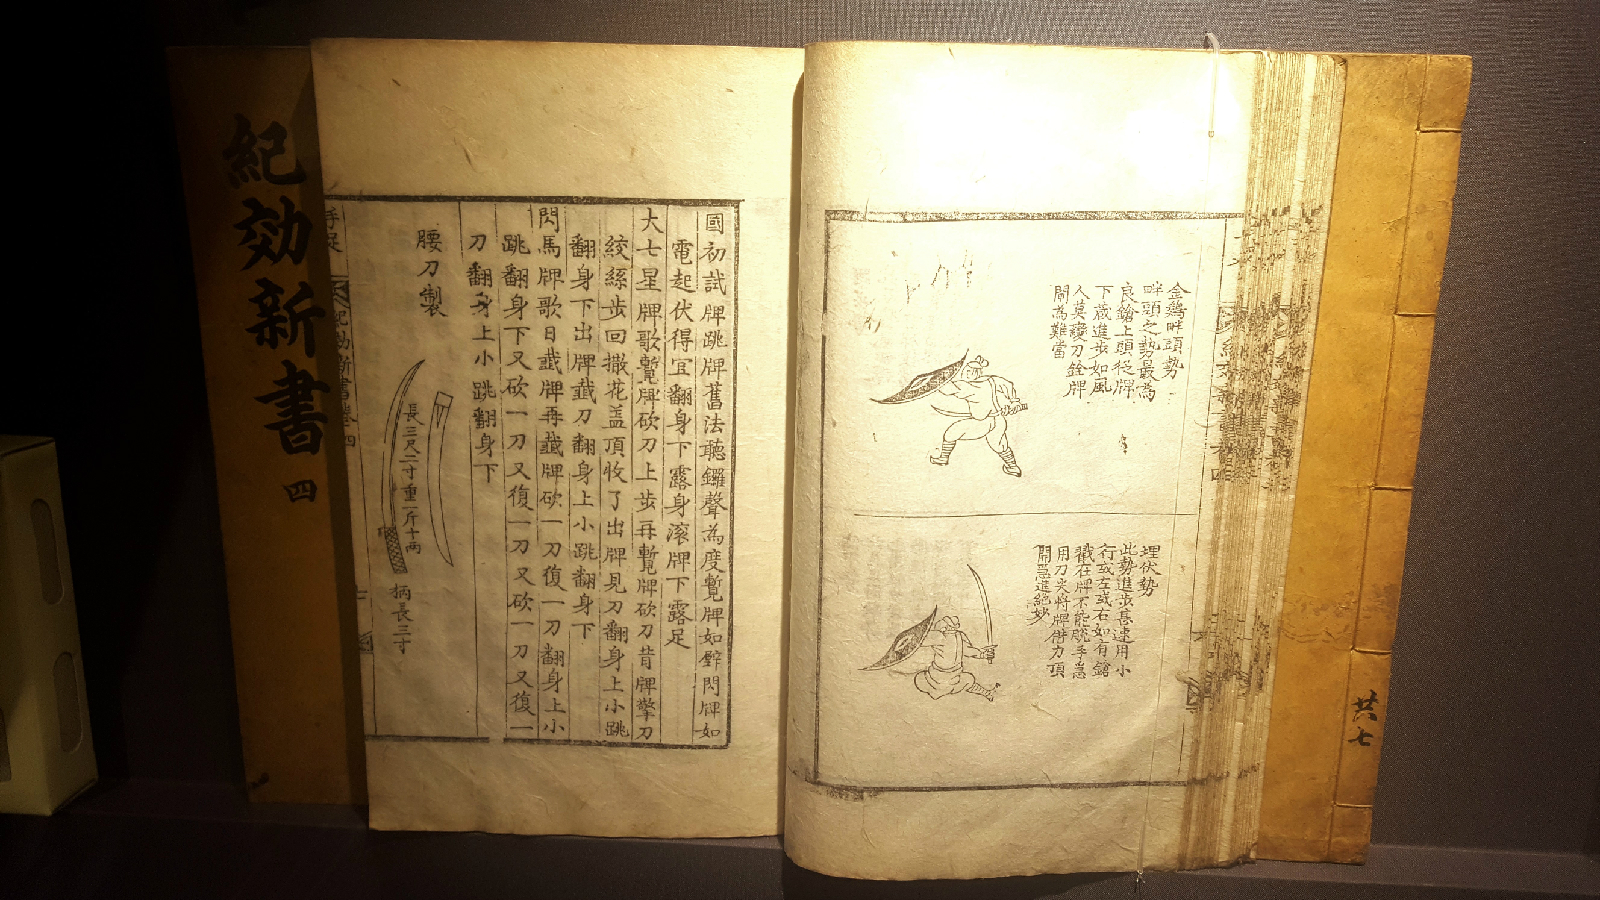 紀効新書 四
金鷄畔頭勢
畔頭之勢最為
良鎗上頭從牌
下蔵進步如風
人莫 刀銓牌
閘為難當
埋伏勢
此勢進步甚速用小
行或左或右如有鎗
戳在牌不能脱手急
用刀尖将牌借力頂
開急進絶妙
國初試牌跳牌舊法聽鑼聲為度 牌如壁閃牌如
電起伏得宜翻身下露身滾牌下露足
大七星牌歌 牌砍刀上步再 牌砍刀昔牌擎刀
絞絲步回撒花盖頂收了出牌見刀翻身上小跳
翻身下出牌 刀翻身上小跳翻身下
閃馬牌歌日 牌再 牌砍一刀復一刀翻身上小
跳翻身下又砍一刀又復一刀又砍一刀又復一
刀翻身上小跳翻身下
腰刀製
長三尺二寸重一斤十两
柄長三寸
手足
紀効新書卷四
共七